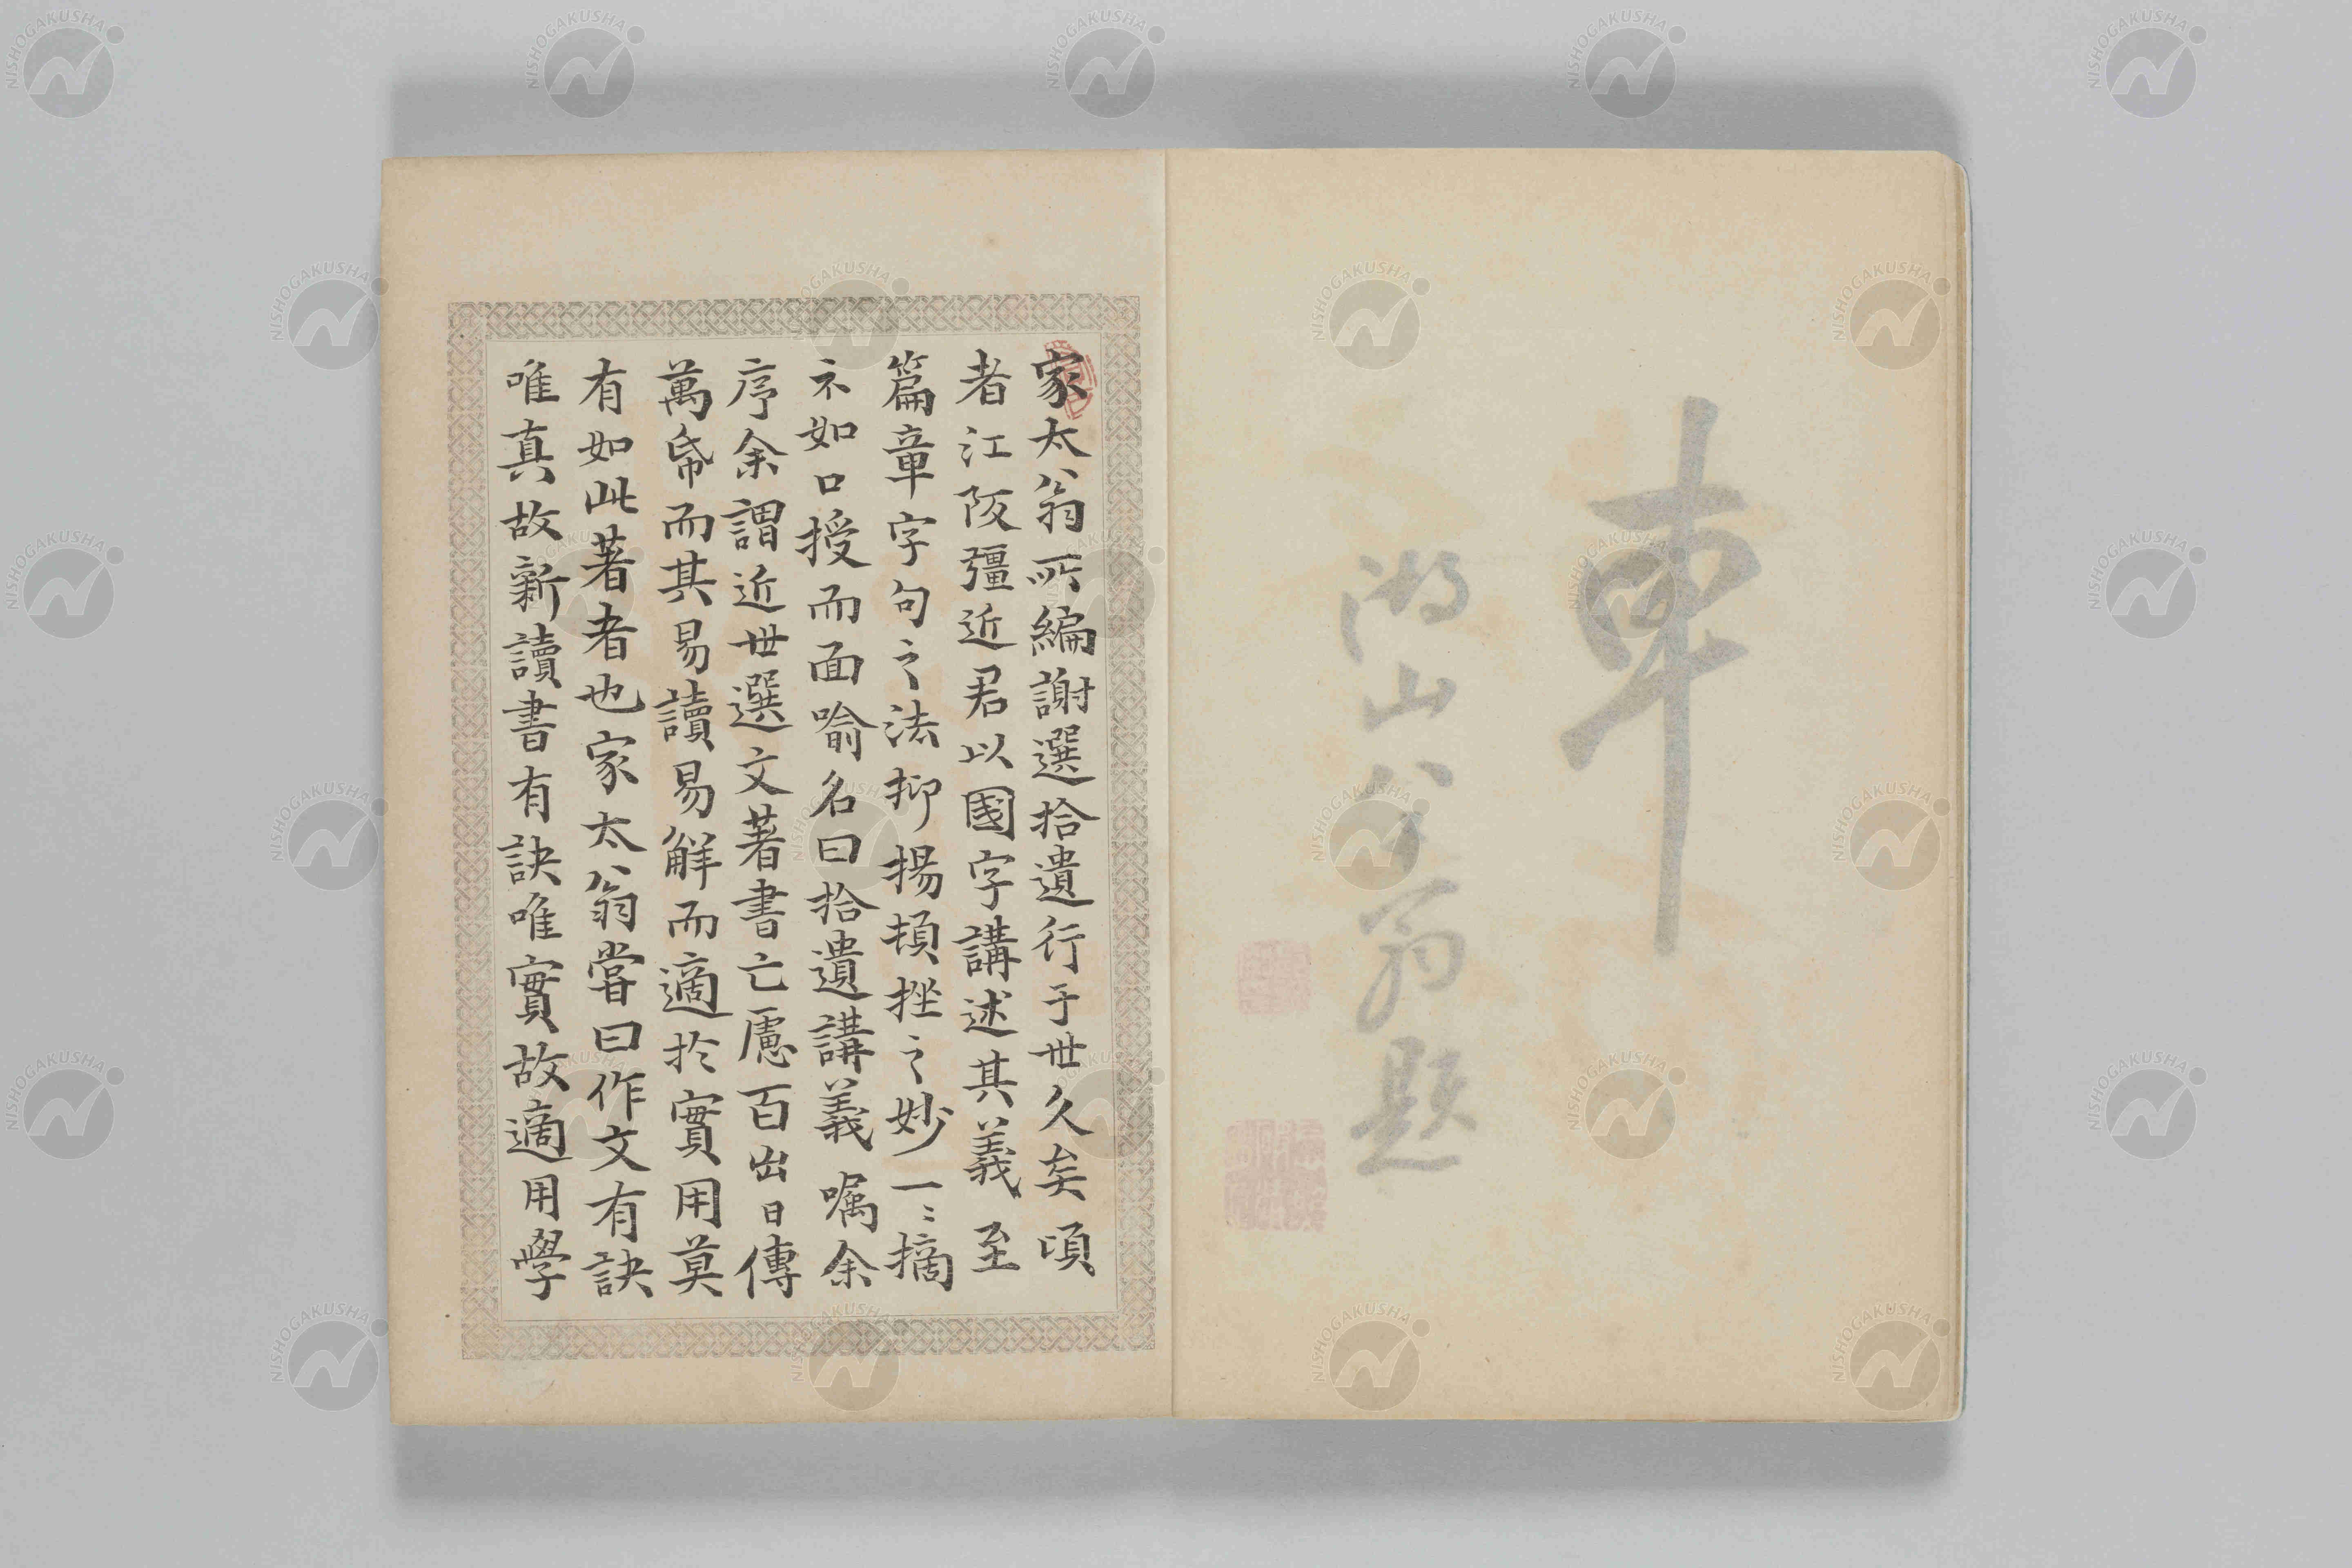 車
湖山八十翁題
家太翁所編謝選拾遺行于世久矣頃
者江阪彊近君以國字講述其義至
篇章字句之法抑揚頓挫之妙一〻摘
示如口授而面喻名曰拾遺講義囑余
序余謂近世選文著書亡慮百出日傳
萬帋而其易讀易解而適於實用莫
有如此著者也家太翁嘗曰作文有訣
唯真故新讀書有訣唯實故適用學
NISHOGAKUSHA